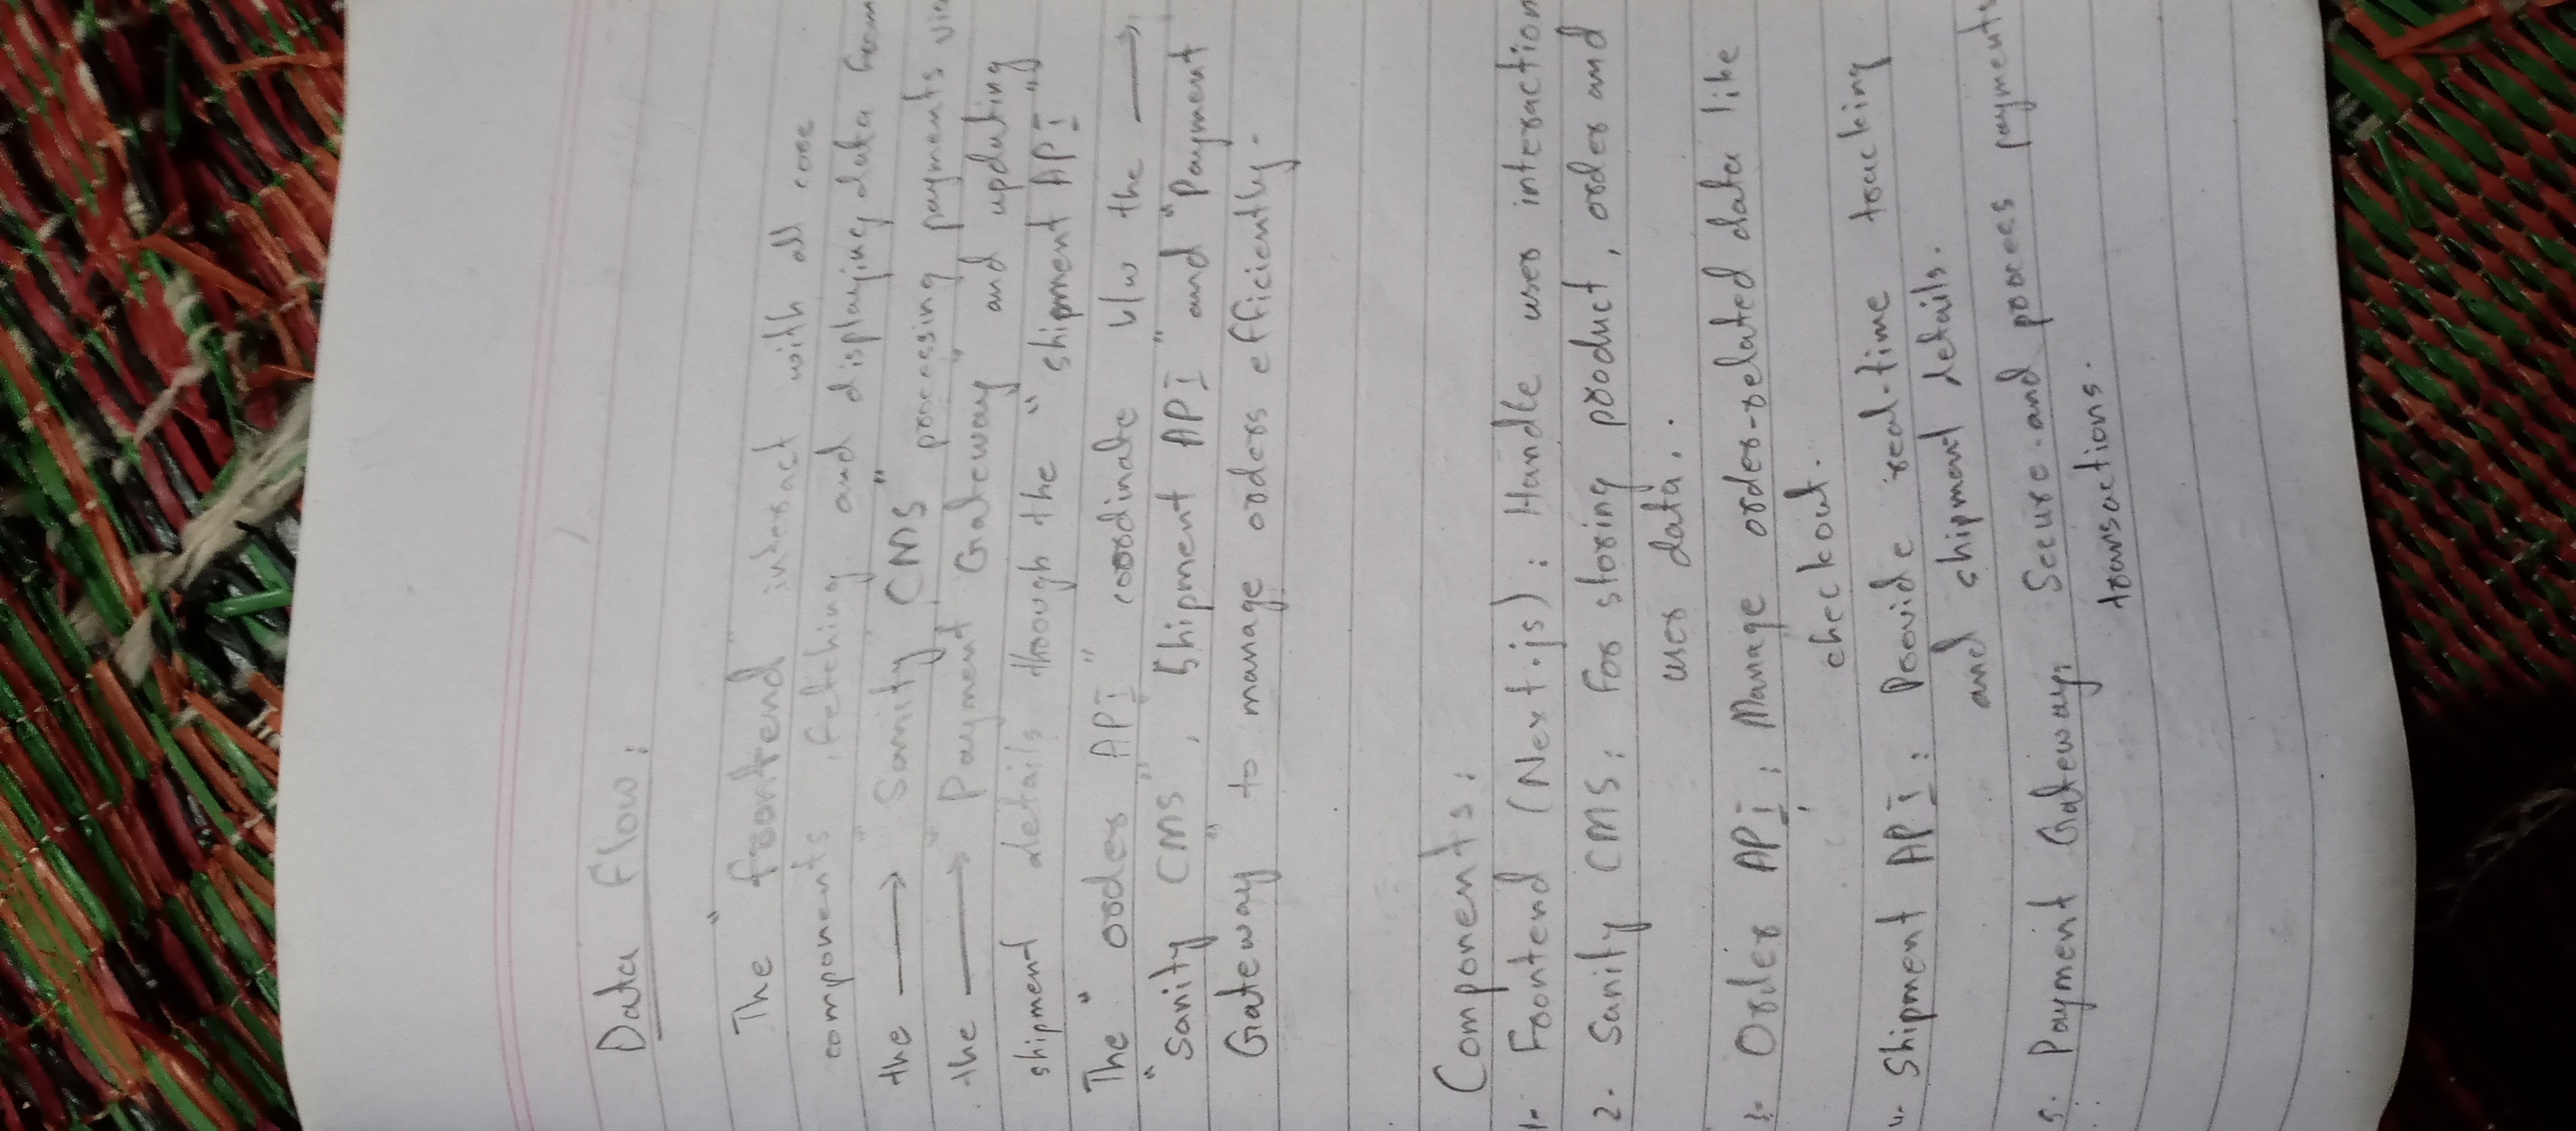 Data Flow:
The "frontend" interact with all core
components, fetching and displaying data from
the → "Sanity CMS" processing payments via
the → "Payment Gateway" and updating
shipment details through the "shipment API"
The "order API" coordinate b/w the →
"Sanity CMS", Shipment API" and "Payment
Gateway" to manage orders efficiently.
Components:
1. Frontend (Next.js): Handle user interaction
2. Sanity CMS: For storing product, order and
user data..
3. Order API: Manage order-related data like
checkout.
4. Shipment API: Provide real-time tracking
and shipment details.
5. Payment Gateway: Secure and process payments
transactions.